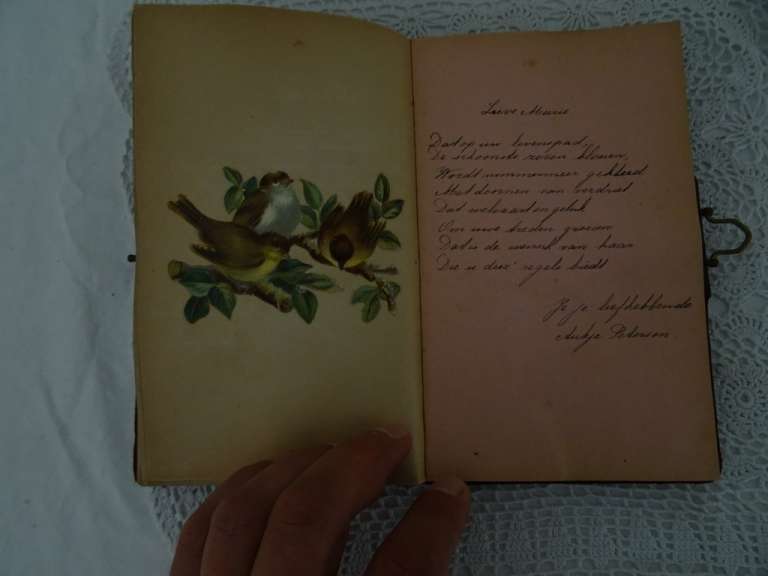 Lieve Marie
Dat op uw levenspad,
De schoonste rozen bloeien,
Wordt nimmermeer gekleed
Met doornen van verdriet
Dat welvaart en geluk
Om uwe treden groeien
Dat is de wensch van haar
Die u deez' regels biedt
Je je liefhebbende
Aukje Peterson.